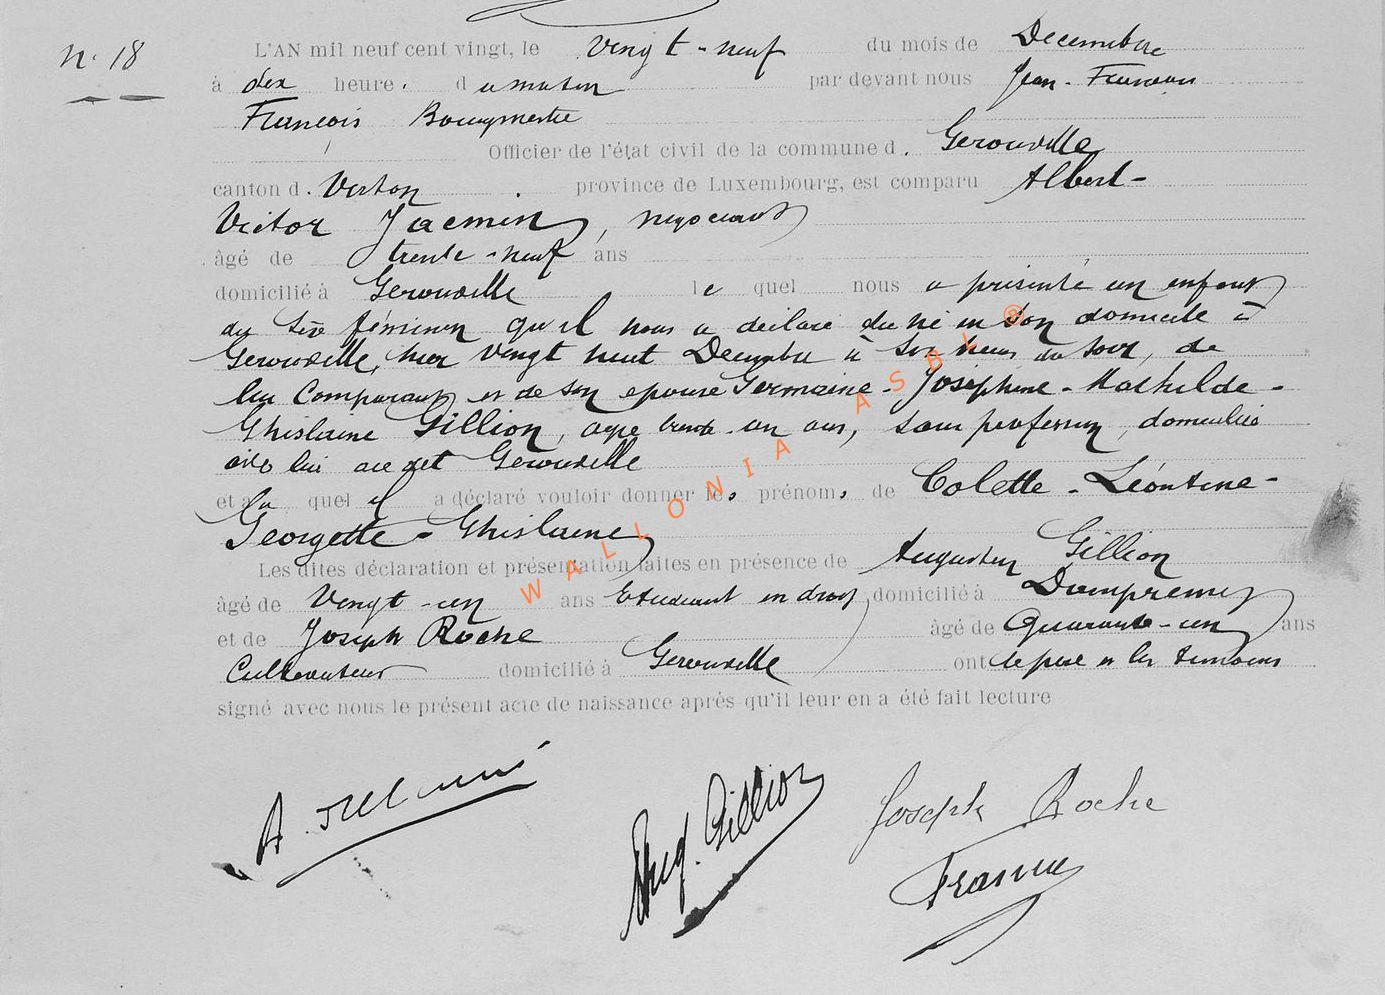 N° 18
L'AN mil neuf cent vingt, le Vingt-neuf du mois de Decembre
à dix heure. du matin par devant nous Jean-Francois
François Bourgmestre
Officier de l'état civil de la commune d. Gerouville
canton d. Virton province de Luxembourg, est comparu Albert-
Victor Jacmin, négociant
âgé de trente-neuf ans
domicilié à Gerouville le quel nous a présenté un enfant
du sexe féminin qu'il nous a déclaré être né en son domicile à
Gerouville, hier vingt huit Decembre à six heures du soir, de
lui Comparant et de son epouse Germaine-Joséphine-Mathilde-
Ghislaine Gillion, agée trente-un ans, sans profession, domiciliée
avec lui au dit Gerouville
et a la quel il a déclaré vouloir donner les prénoms de Colette-Léontine-
Georgette-Ghislaine
Les dites déclaration et présentation faites en présence de Augustin Gillion
âgé de Vingt-un ans Etudiant en droit, domicilié à Dampremy
et de Joseph Roche âgé de Quarante-un ans
Cultivateur domicilié à Gerouville ont le père et les témoins
signé avec nous le présent acte de naissance après qu'il leur en a été fait lecture
WALLONIA ASBL ®
Aug. Gillion
Joseph Roche